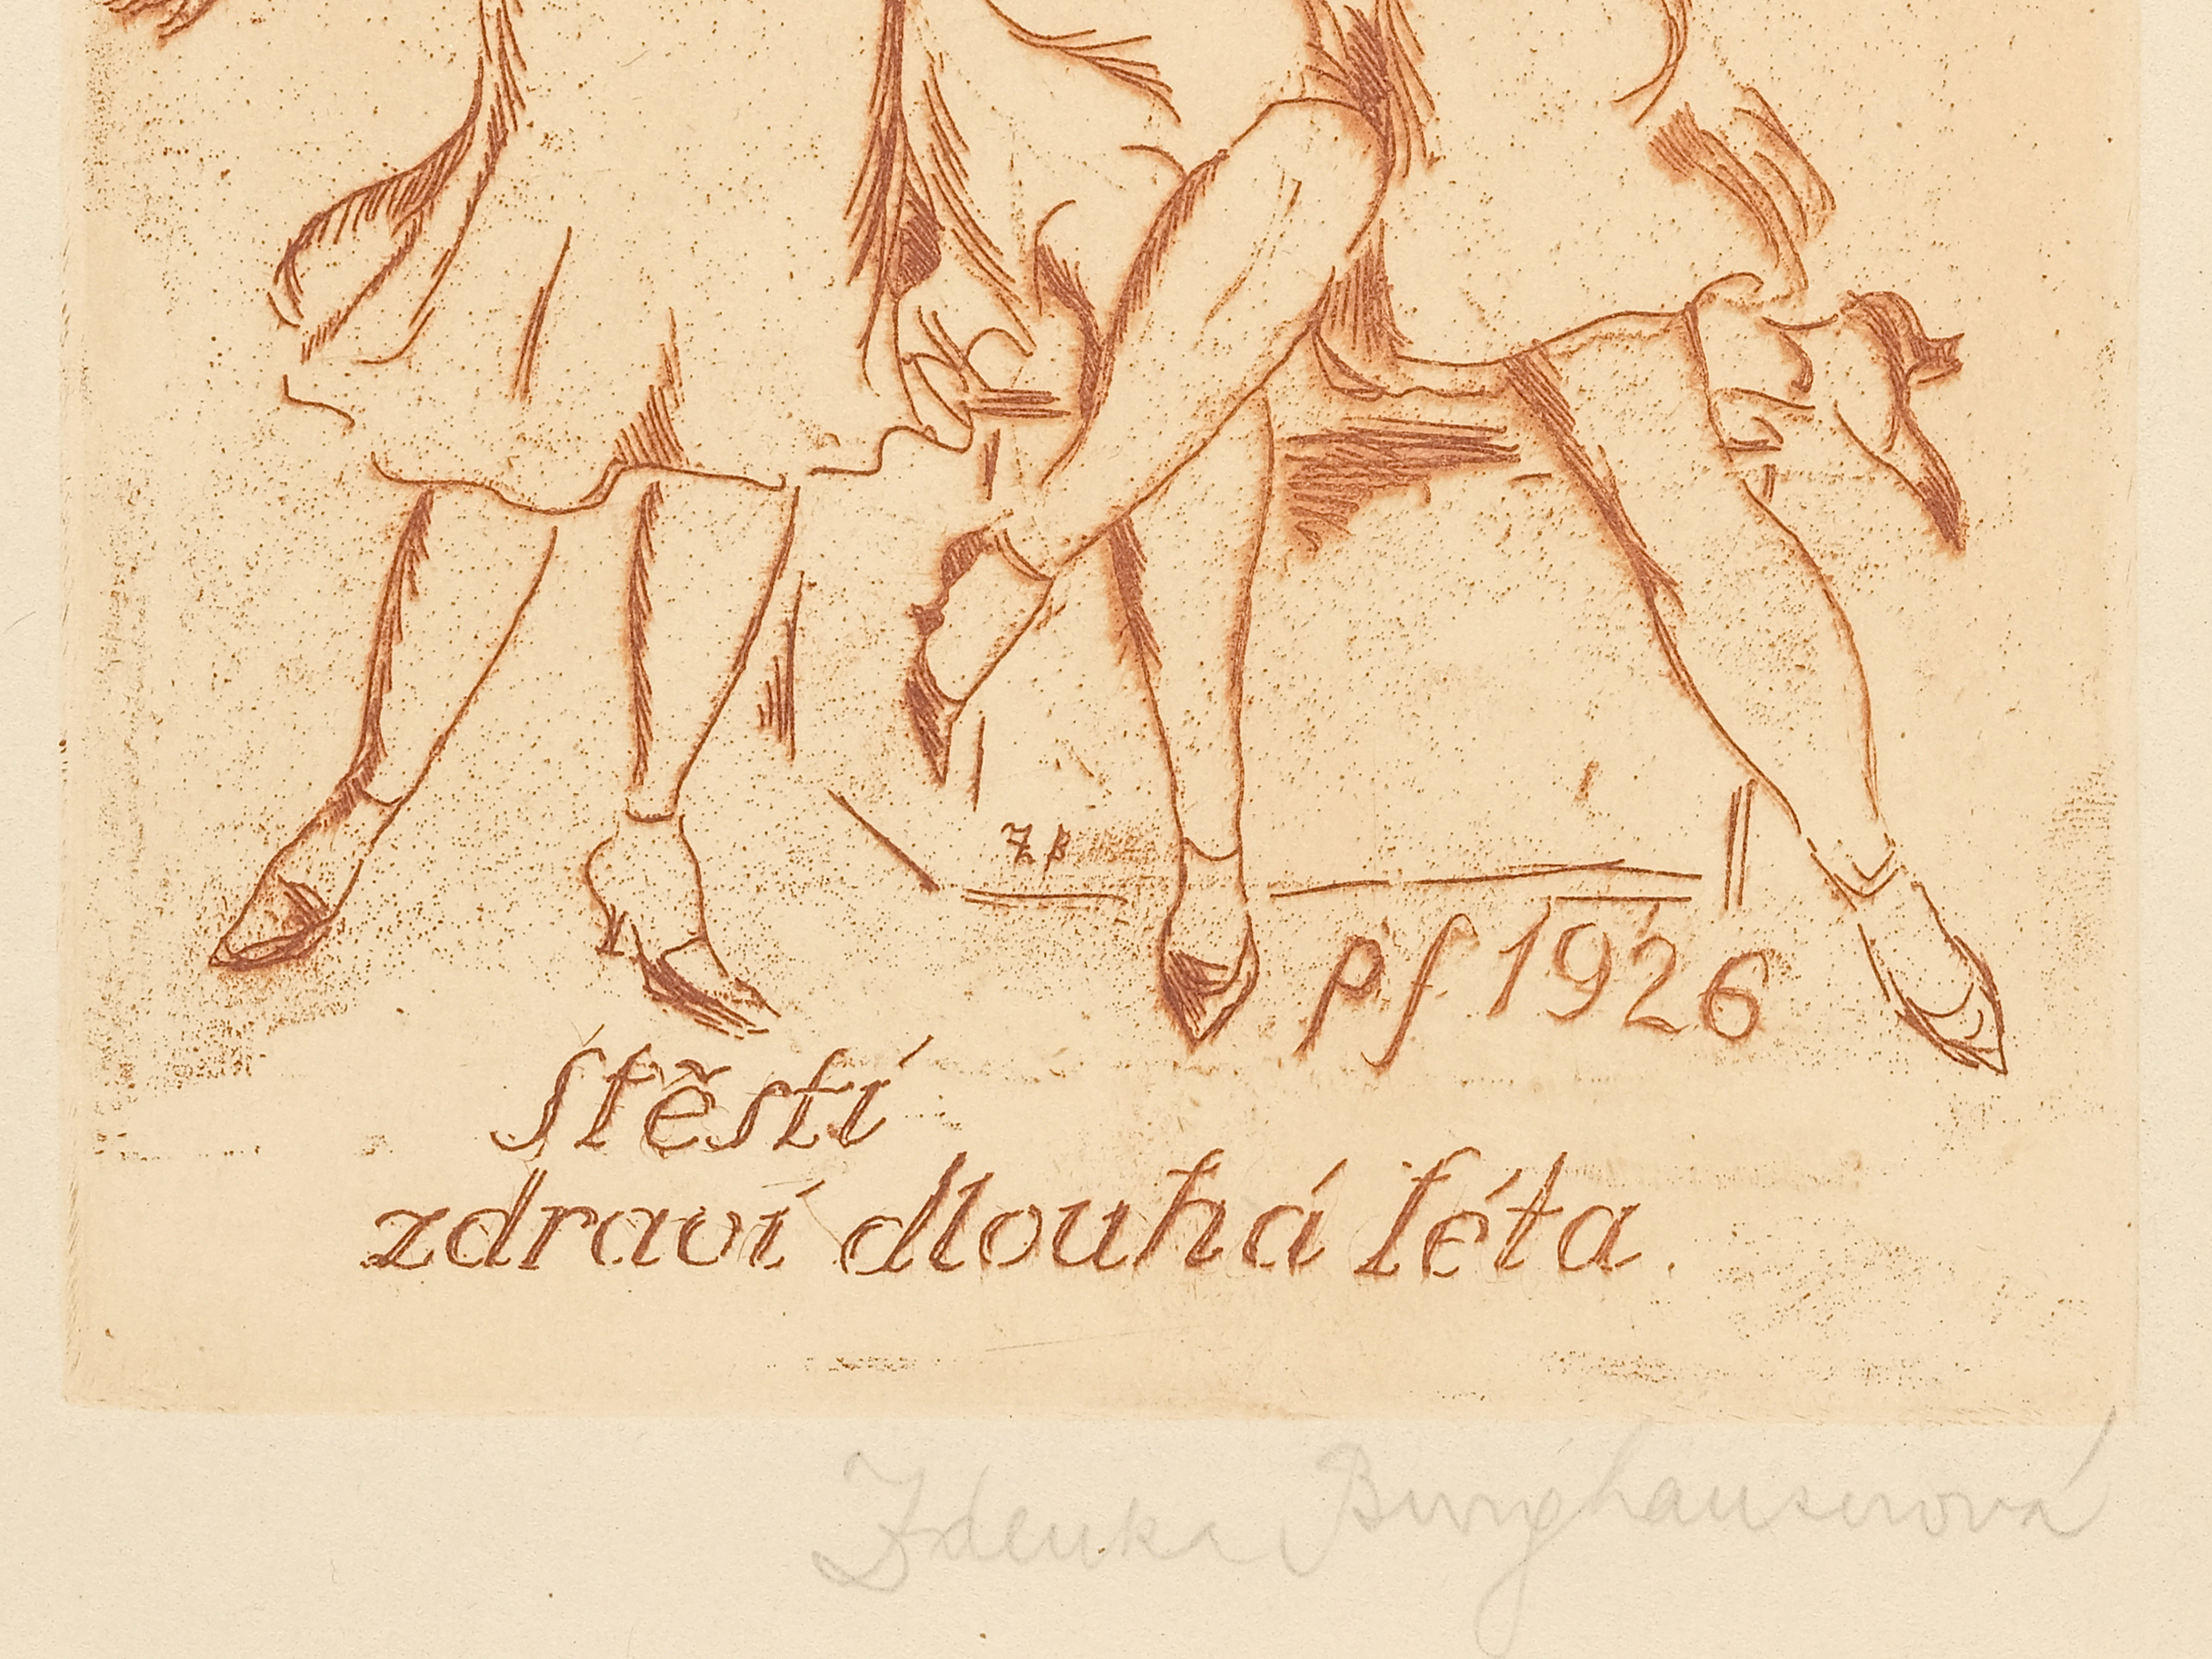 ZB
pf 1926
stěstí
zdraví dlouhá léta.
Zdenka Burghauserová